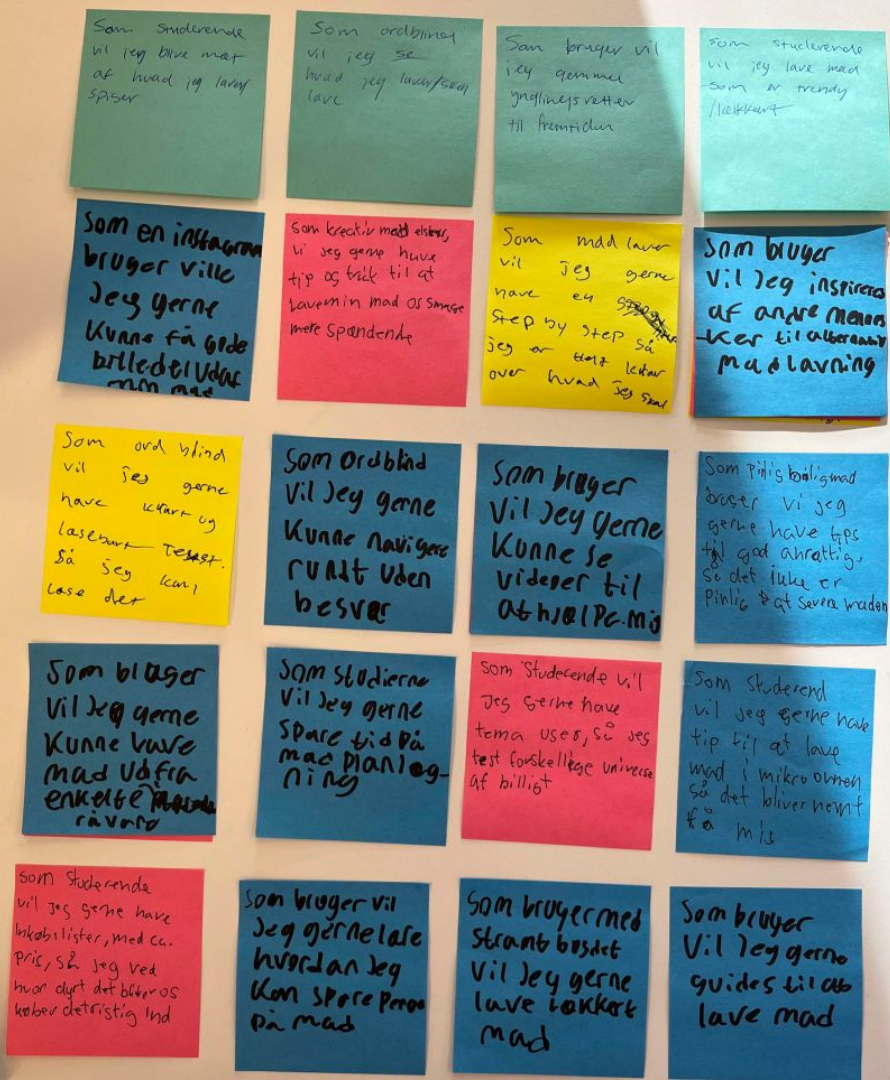 Som studerende
vil jeg blive mæt
af hvad jeg laver/
spiser
Som ordblind
vil jeg se
hvad jeg laver/skal
lave
Som bruger vil
jeg gemme
yndlingsretter
til fremtiden
Som studerende
vil jeg lave mad
som er trendy
/lækkert
Som en instagram
bruger ville
Jeg gerne
Kunne få gode
billeder udaf
min mad
Som kreativ mad elsker,
vi jeg gerne have
tip og trick til at
lave min mad os smage
mere spændende
Som mad laver
vil jeg gerne
have en
step by step så
jeg er klar
over hvad jeg skal
Som bruger
Vil Jeg inspireres
af andre mennes
ker til alternativ
madlavning
Som ord blind
vil jeg gerne
have klart og
læsbart Tekst.
så jeg kan
læse det
Som Ordblind
Vil Jeg gerne
Kunne navigere
rundt uden
besvær
Som bruger
Vil Jeg gerne
Kunne se
videoer til
at hjælpe mig
Som pinlig boligmad
bruger vi jeg
gerne have tips
til god anrettig,
så det ikke er
pinlig at severe maden
Som bruger
Vil Jeg gerne
Kunne lave
mad udfra
enkelte
råvare
Som studierne
Vil Jeg gerne
spare tid på
mad planlæg-
ning
Som Studerende vil
Jeg gerne have
tema uger, så jeg
test forskellige universe
af billigt
Som studerend
vil jeg gerne have
tip til at lave
mad i mikroovnen
så det bliver nemt
få mig
Som Studerende
vil jeg gerne have
Inkøbslister, med ca.
pris, så jeg ved
hvor dyrt det bliver os
køber det rigtig ind
Som bruger vil
Jeg gerne lære
hvordan Jeg
Kan spare penge
på mad
Som bruger med
stramt budget
Vil Jeg gerne
lave lækkert
mad
Som bruger
Vil Jeg gerne
guides til at
lave mad